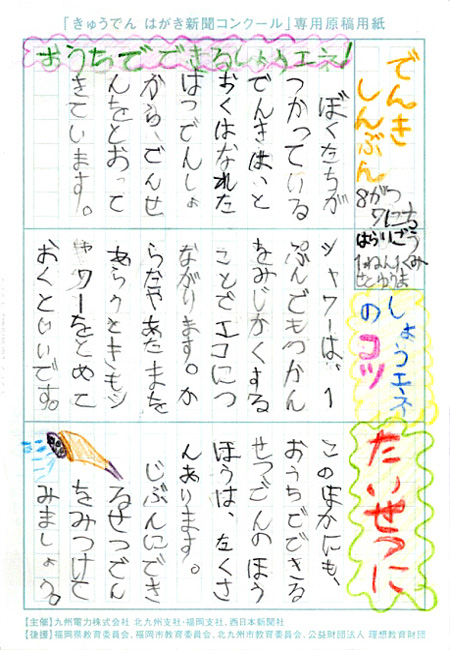 「きゅうでん はがき新聞コンクール」専用原稿用紙
おうちでできるしょうエネ!
でんき
しんぶん
8がつ
7にち
1ねん1くみ
ぼくたちが
つかっている
でんきは、と
おくはなれた
はつでんしょ
から、でんせ
んをとおって
きています。
しょうエネ
のコツ
シャワーは、1
ぷんでもじかん
をみじかくする
ことでエコにつ
ながります。か
らだやあたまを
あらうときもシ
ャワーをとめて
おくといいです。
たいせつに
このほかにも、
おうちでできる
せつでんのほう
ほうは、たくさ
んあります。
じぶんにでき
るせつでん
をみつけて
みましょう。
【主催】九州電力株式会社 北九州支社・福岡支社、西日本新聞社
【後援】福岡県教育委員会、福岡市教育委員会、北九州市教育委員会、公益財団法人 理想教育財団